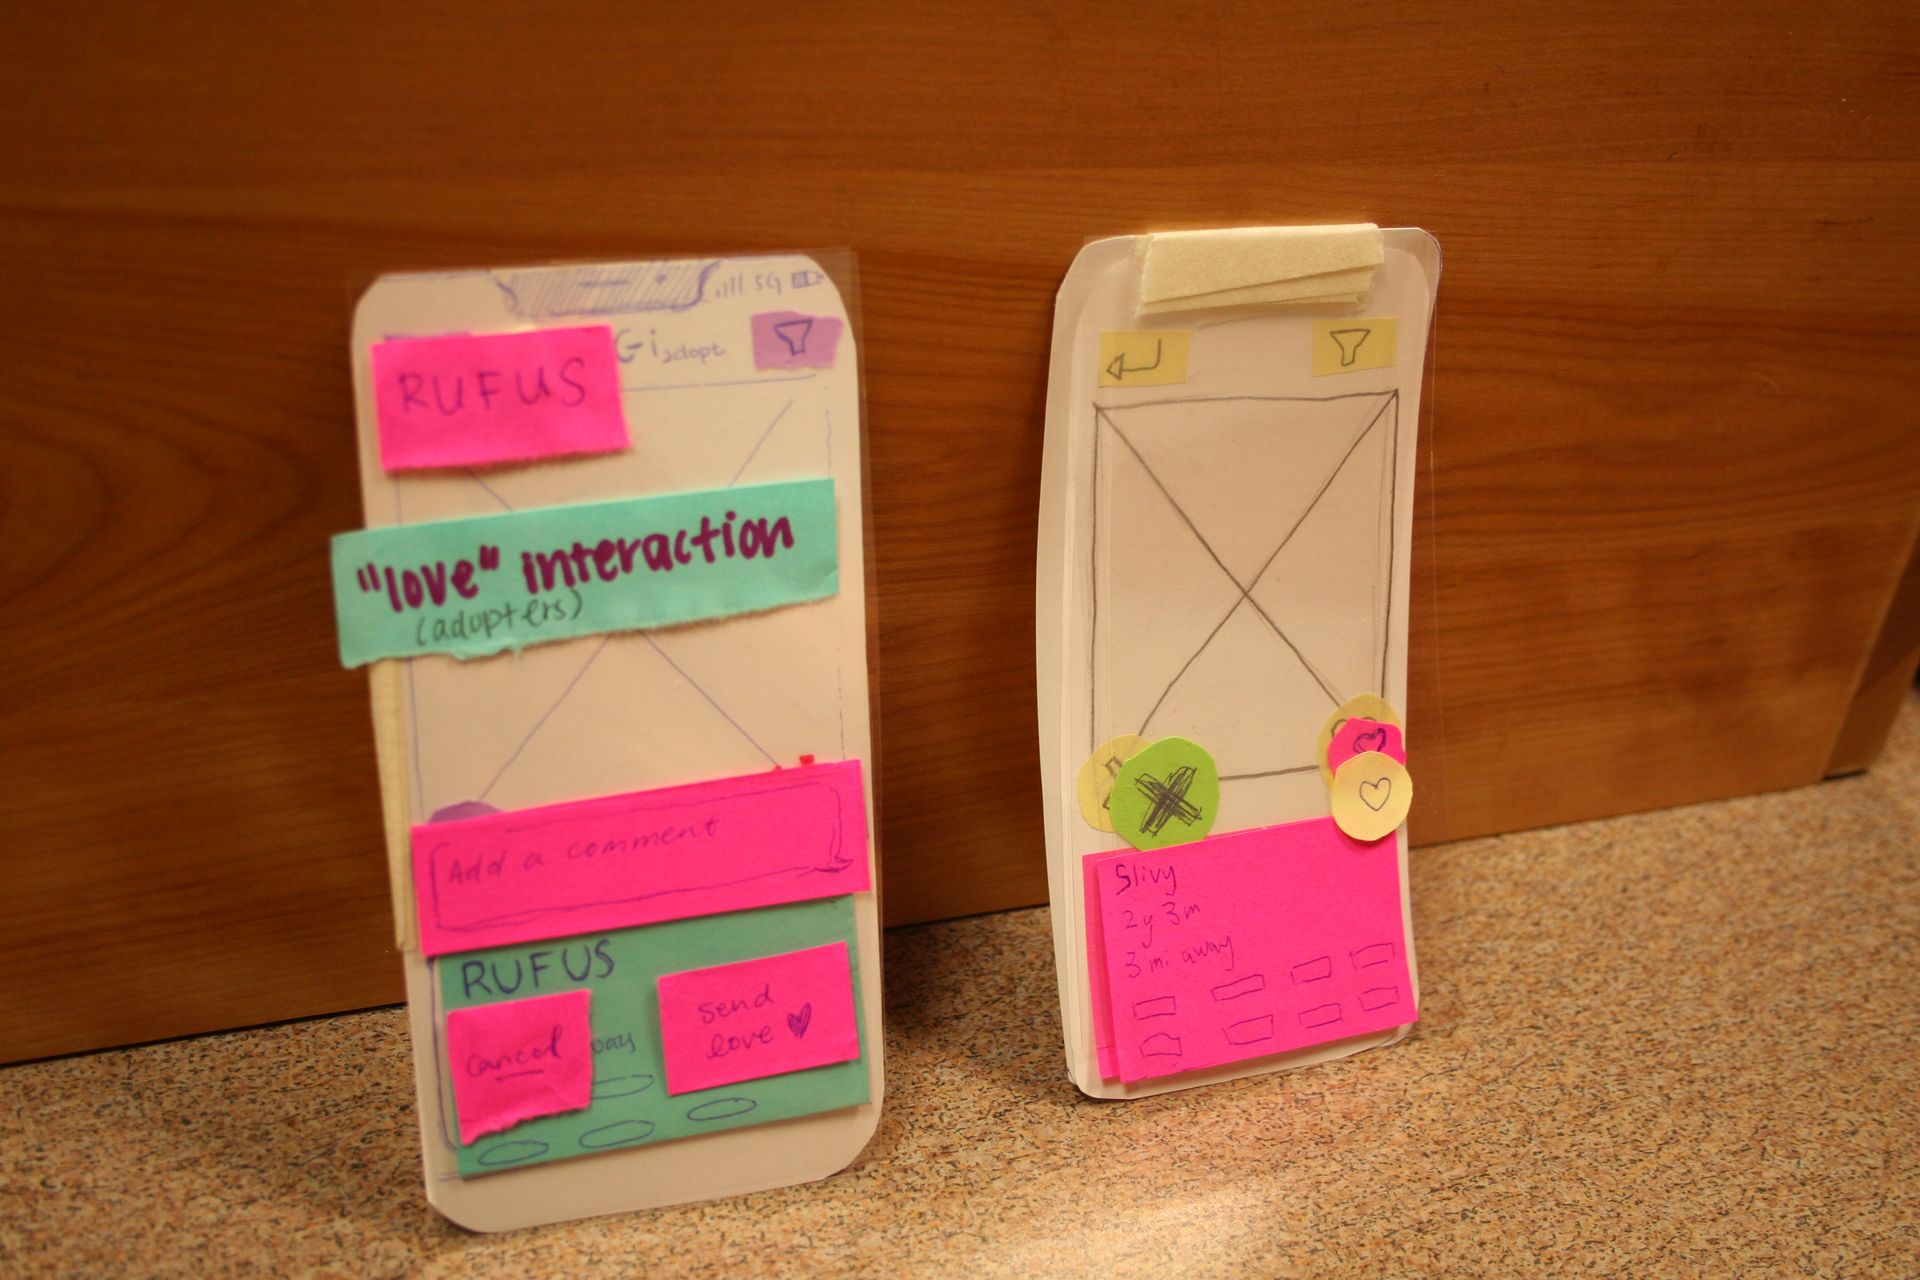 5G
Gi adopt
RUFUS
"love" interaction
(adopters)
Add a comment
RUFUS
cancel
send
love
Slivy
2y 3m
3 mi away